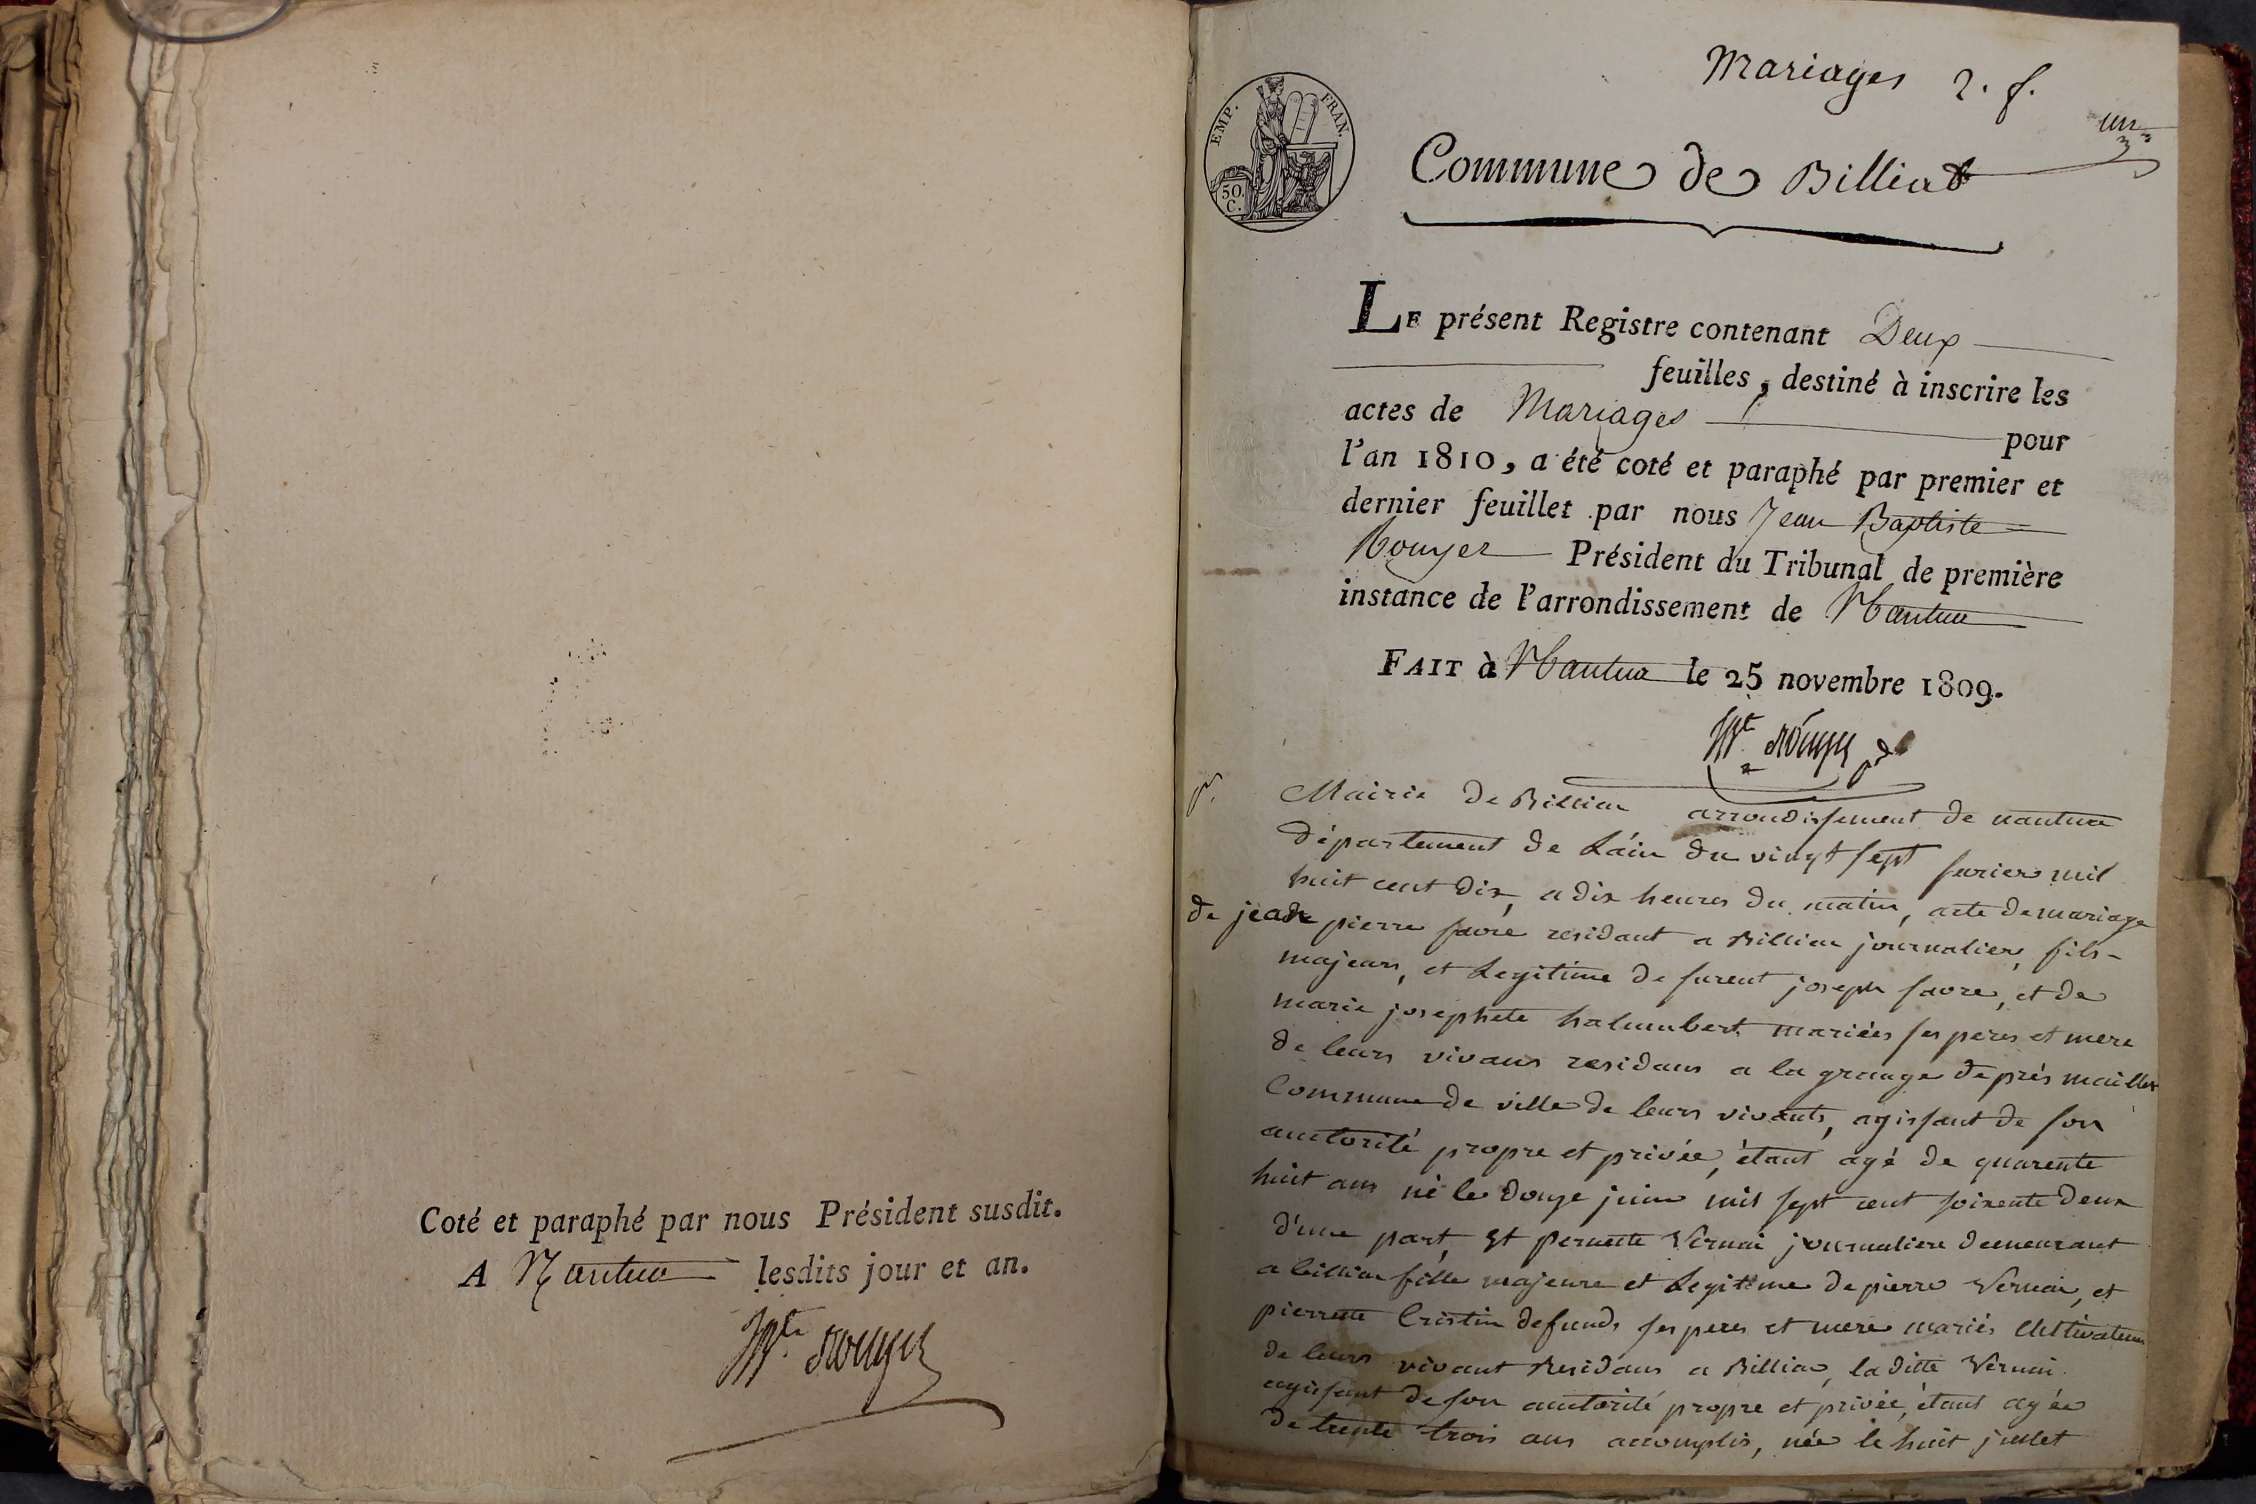 Coté et paraphé par nous Président susdit.
A Nantua lesdits jour et an.
Jn Bte Rouyer
Mariages 2. f.
un
EMP. FRAN.
50.
C.
Commune de Billiat
LE présent Registre contenant Deux
feuilles, destiné à inscrire les
actes de Mariages pour
l'an 1810, a été coté et paraphé par premier et
dernier feuillet par nous Jean Baptiste
Rouyer Président du Tribunal de première
instance de l'arrondissement de Nantua
FAIT à Nantua le 25 novembre 1809.
Rouyer
Mairie de Billia arrondissement de nantua
département de Lain du vingt sept fevrier mil
huit cent dix, a dix heures du matin, acte de mariage
de jean pierre favre residant a Billia journalier, fils
majeur, et Legitime de furent joseph favre, et de
marie josephete halumbert mariées ses peres et mere
de leurs vivans residans a la grange de prés maillet
Commune de ville de leurs vivants, agissant de son
auttorité propre et privée, étant agé de quarente
huit ans né le douze juin mil sept cent soixente deux
d'une part, Et pernette Vernai journaliere demeurant
a billia fille majeure et Legitime de pierre Vernai, et
pierrette Cristin defunds ses peres et mere mariés Cultivateurs
de leurs vivant Residans a Billia, la ditte Vernai
agissant de son auttorité propre et privée, étant agée
de trente trois ans accomplis, née le huit juillet